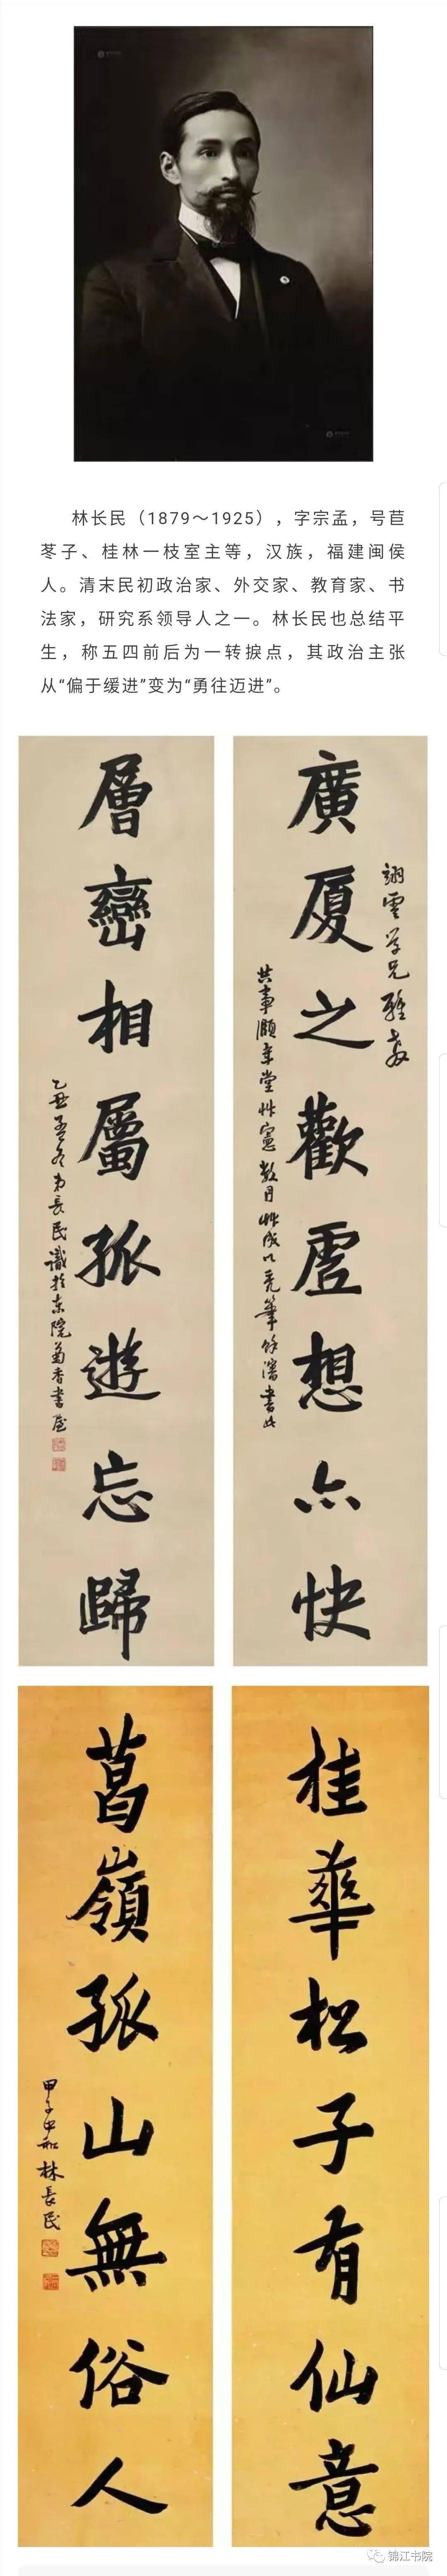 林长民（1879～1925），字宗孟，号苣
苳子、桂林一枝室主等，汉族，福建闽侯
人。清末民初政治家、外交家、教育家、书
法家，研究系领导人之一。林长民也总结平
生，称五四前后为一转捩点，其政治主张
从“偏于缓进”变为“勇往迈进”。
翊雲学兄雅教
廣厦之歡虛想亦快
層巒相屬孤遊忘歸
乙丑孟冬弟長民識於东院菊香書屋
桂華松子有仙意
葛嶺孤山無俗人
甲子中和林長民
锦江书院